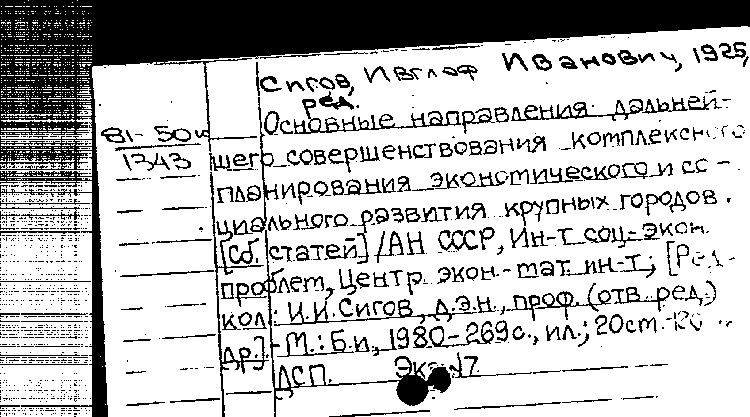 Сигов, Ивглаф Иванович, 1925,
ред.
81-50и
1343
Основные направления дальней-
шего совершенствования комплексного
планирования экономического и со-
циального развития крупных городов.
[Сб. статей] / АН СССР, Ин-т соц.-экон.
проблем, Центр. экон.-мат. ин-т; [Ред.-
кол.: И.И. Сигов, д.э.н., проф. (отв. ред.)
др.] - М.: Б.и., 1980 - 269с., ил.; 20см.-
ДСП. Экз. №7